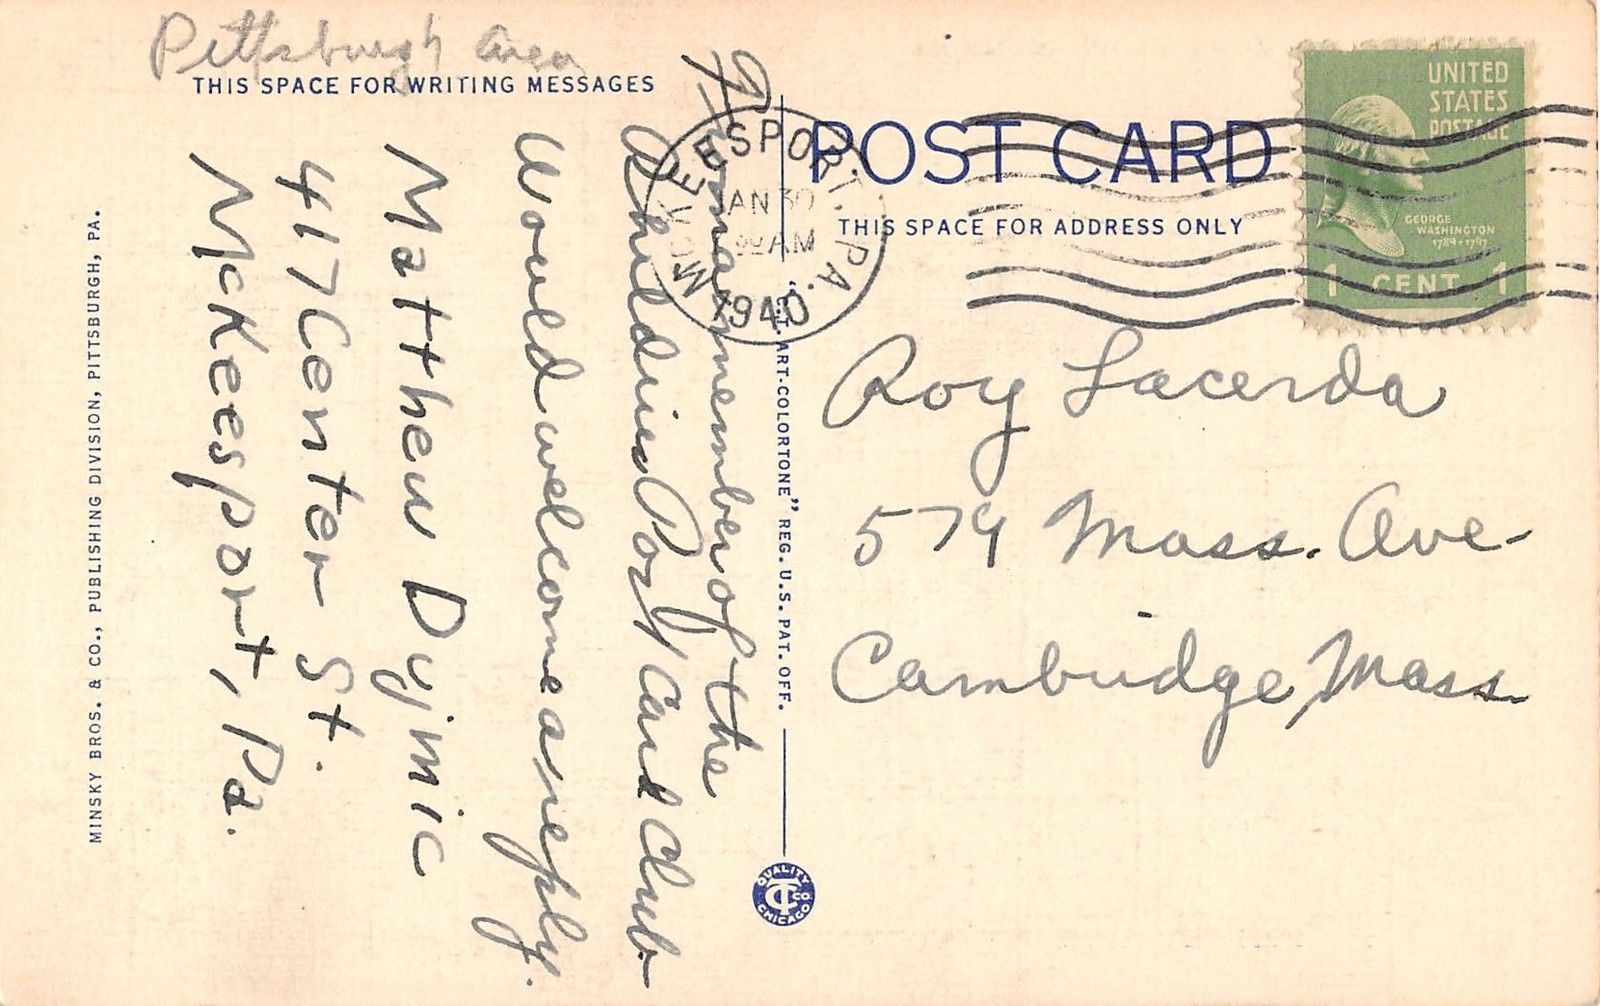 Pittsburgh area
THIS SPACE FOR WRITING MESSAGES
I, am a member of the
Post Card Club
Would welcome a reply.
Matthew Dujmic
417 Center St.
McKeesport, Pa.
MINSKY BROS. & CO., PUBLISHING DIVISION, PITTSBURGH, PA.
"C.T. ART-COLORTONE" REG. U.S. PAT. OFF.
QUALITY
CT CO
CHICAGO
McKEESPORT, PA.
JAN 30
AM
1940
POST CARD
THIS SPACE FOR ADDRESS ONLY
UNITED
STATES
POSTAGE
GEORGE
WASHINGTON
1789-1797
1 CENT 1
Roy Lacerda
579 Mass. Ave.
Cambridge, Mass.